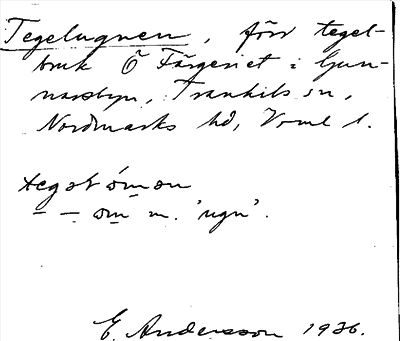 Tegelugnen, förr tegel-
bruk Ö Färgeriet i Gun-
narsbyn, Trankils sn,
Nordmarks hd, Vrml l.
tegəl ómən
om m. 'ugn'.
E. Andersson 1936.